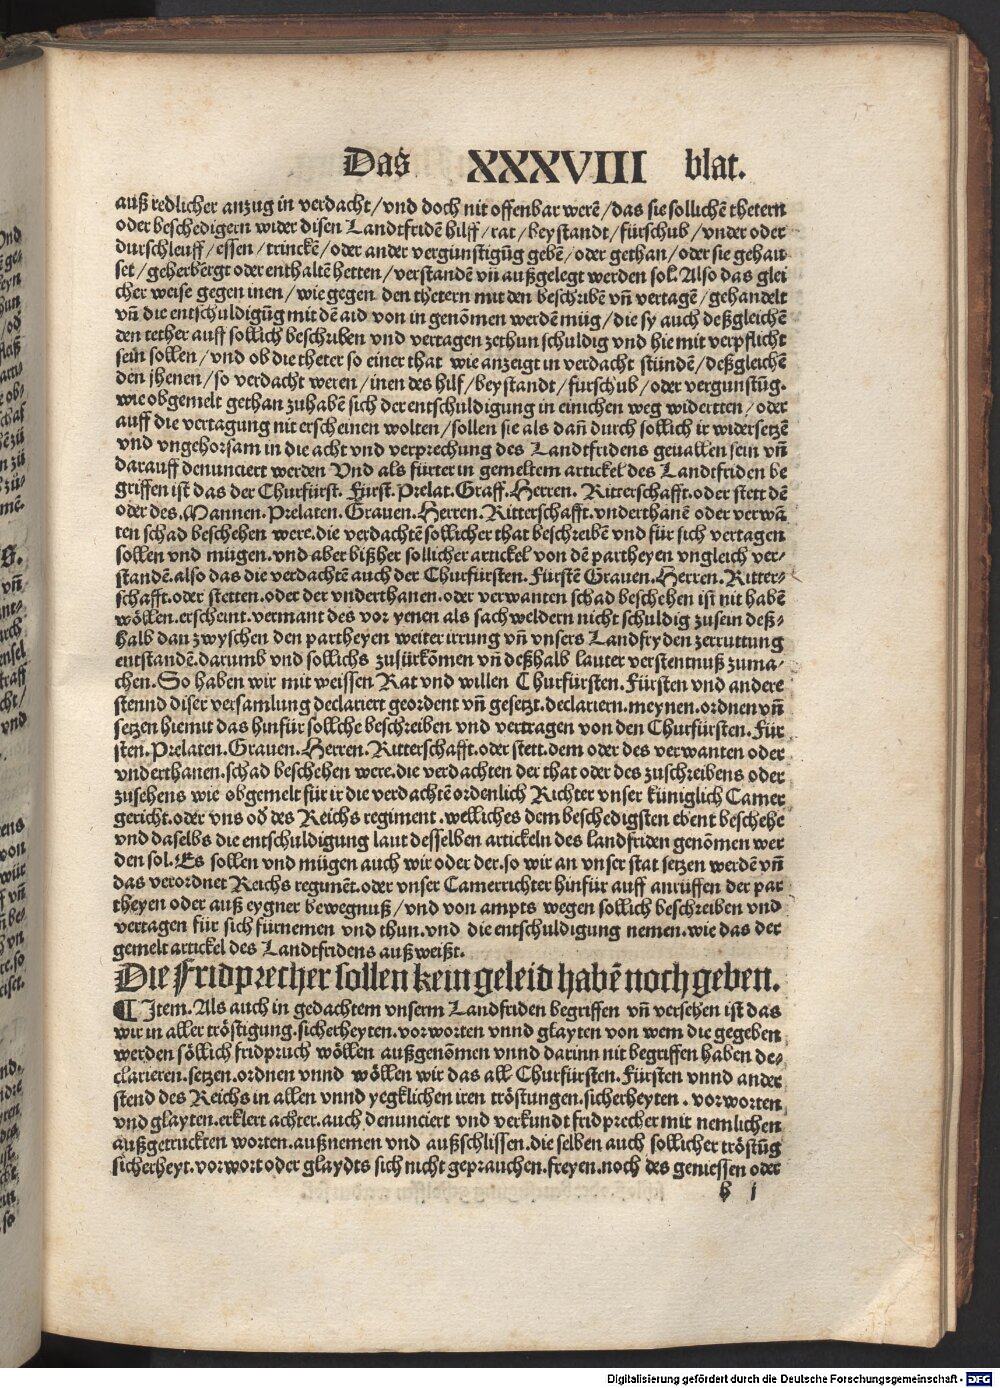 Das XXXVIII blat.
auß redlicher anzug in verdacht/vnd doch nit offenbar werē/das sie sollichē thetern
oder beschedigern wider disen Landtfridē hilff/rat/beystandt/fürschub/vnder oder
durschleuff/essen/trinckē/oder ander vergünstigūg gebē/oder gethan/oder sie gehau
set/geherbergt oder enthaltē hetten/verstandē vn̄ außgelegt werden sol. Also das glei
cher weise gegen inen/wie gegen den thetern mit den beschribē vn̄ vertagē/gehandelt
vn̄ die entschuldigūg mit dē aid von in genōmen werdē müg/die sy auch deßgleichē
den tether auff sollich beschriben vnd vertagen zethun schuldig vnd hie mit verpflicht
sein sollen/vnd ob die theter so einer that wie anzeigt in verdacht stündē/deßgleichē
den jhenen/so verdacht weren/inen des hilf/beystandt/furschub/oder vergunstūg.
wie obgemelt gethan zuhabē sich der entschuldigung in einichen weg widertten/oder
auff die vertagung nit erscheinen wolten/sollen sie als dan̄ durch sollich ir widersetzē
vnd vngehorsam in die acht vnd verprechung des Landtfridens geuallen sein vn̄
darauff denunciert werden Vnd als fürter in gemeltem artickel des Landtfriden be
griffen ist das der Churfürst. Fürst. Prelat. Graff. Herren. Ritterschafft. oder stett dē
oder des. Mannen. Prelaten. Grauen. Herren. Ritterschafft. vnderthanē oder verwā
ten schad beschehen were. die verdachtē sollicher that beschreibē vnd für sich vertagen
sollen vnd mügen. vnd aber bißher sollicher artickel von dē partheyen vngleich ver-
standē. also das die verdachtē auch der Churfürsten. Fürstē Grauen. Herren. Ritter-
schafft. oder stetten. oder der vnderthanen. oder verwanten schad beschehen ist nit habē
wöllen. erscheint. vermant des vor yenen als sachweldern nicht schuldig zusein deß-
halb dan zwyschen den partheyen weiter irrung vn̄ vnsers Landfryden zerruttung
entstandē. darumb vnd sollichs zufürkōmen vn̄ deßhalb lauter verstentnuß zuma-
chen. So haben wir mit weissen Rat vnd willen Churfürsten. Fürsten vnd andere
stennd diser versamlung declariert geordent vn̄ gesetzt. declariern. meynen. ordnen vn̄
setzen hiemit das hinfür solliche beschreiben vnd vertragen von den Churfürsten. Für
sten. Prelaten. Grauen. Herren. Ritterschafft. oder stett. dem oder des verwanten oder
vnderthanen. schad beschehen were. die verdachten der that oder des zuschreibens oder
zusehens wie obgemelt für ir die verdachtē ordenlich Richter vnser küniglich Camer
gericht. oder vns od des Reichs regiment. welliches dem beschedigsten ebent beschehe
vnd daselbs die entschuldigung laut desselben artickeln des landfriden genōmen wer
den sol. Es sollen vnd mügen auch wir oder der. so wir an vnser stat setzen werdē vn̄
das verordnet Reichs regimēt. oder vnser Camerrichter hinfür auff anrüffen der par
theyen oder auß eygner bewegnuß/vnd von ampts wegen sollich beschreiben vnd
vertagen für sich fürnemen vnd thun. vnd die entschuldigung nemen. wie das der
gemelt artickel des Landtfridens außweißt.
Die Fridprecher sollen kein geleid habē noch geben.
¶ Item. Als auch in gedachtem vnserm Landfriden begriffen vn̄ versehen ist das
wir in aller tröstigung. sicherheyten. vorworten vnnd glayten von wem die gegeben
werden söllich fridpruch wöllen außgenōmen vnnd darinn nit begriffen haben de-
clarieren. setzen. ordnen vnnd wöllen wir das all Churfürsten. Fürsten vnnd ander
stend des Reichs in allen vnnd yegklichen iren tröstungen. sicherheyten. vorworten
vnd glayten. erklert achter. auch denunciert vnd verkundt fridprecher mit nemlichen
außgetruckten worten. außnemen vnd außschlissen. die selben auch sollicher tröstūg
sicherheyt. vorwort oder glaydts sich nicht geprauchen. freyen. noch des geniessen oder
h j
Digitalisierung gefördert durch die Deutsche Forschungsgemeinschaft - DFG